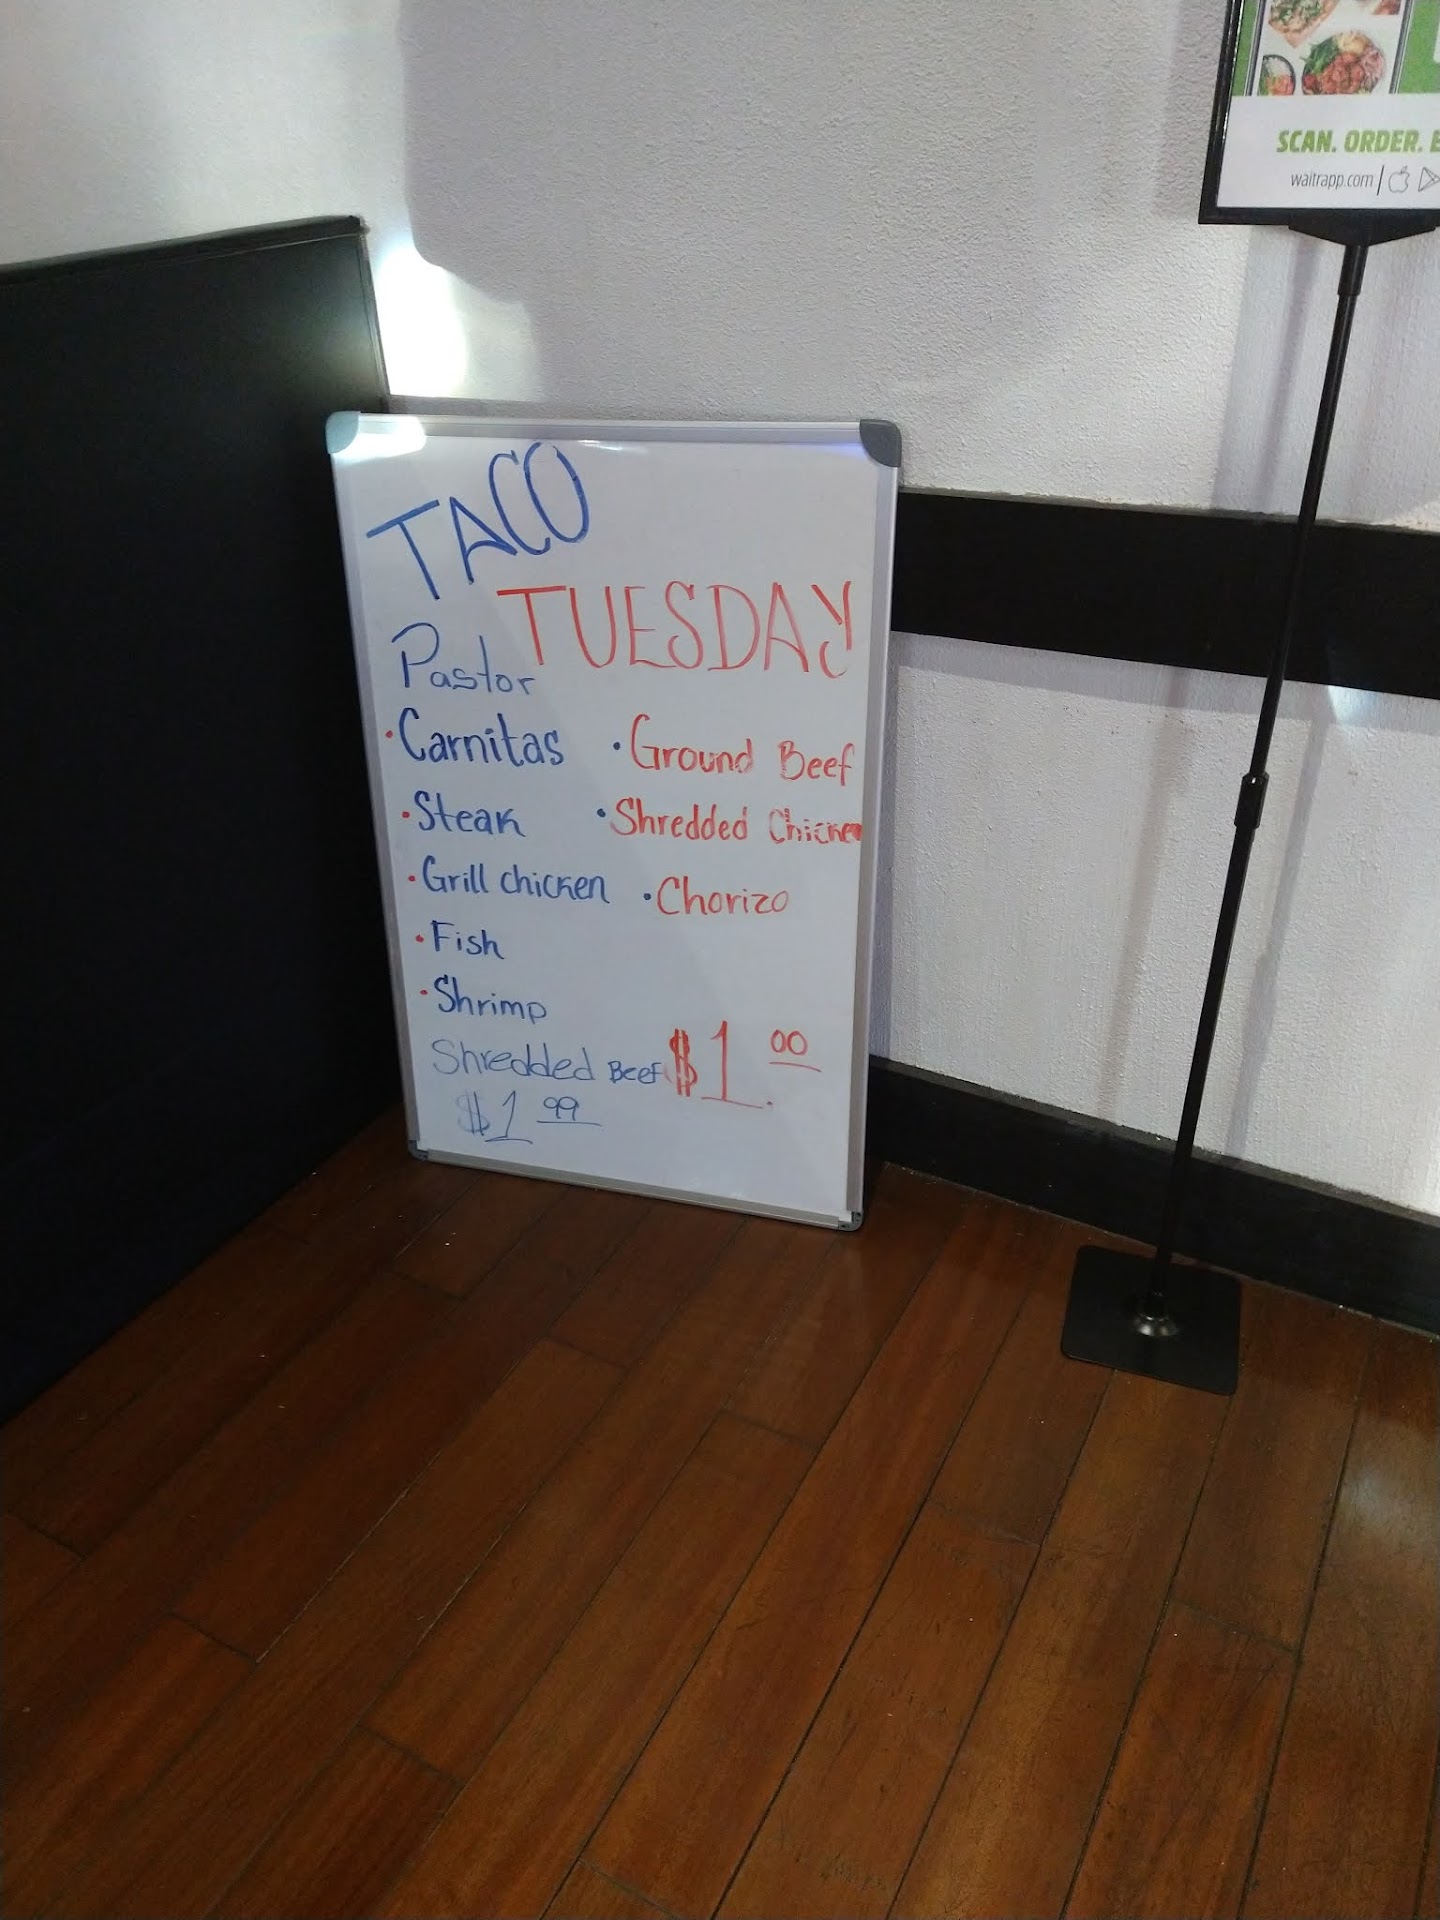 TACO
TUESDAY
Pastor
• Carnitas
• Steak
• Grill chicken
• Fish
• Shrimp
Shredded Beef
$1 99
• Ground Beef
• Shredded Chicken
• Chorizo
$1.00
SCAN. ORDER.
waitrapp.com